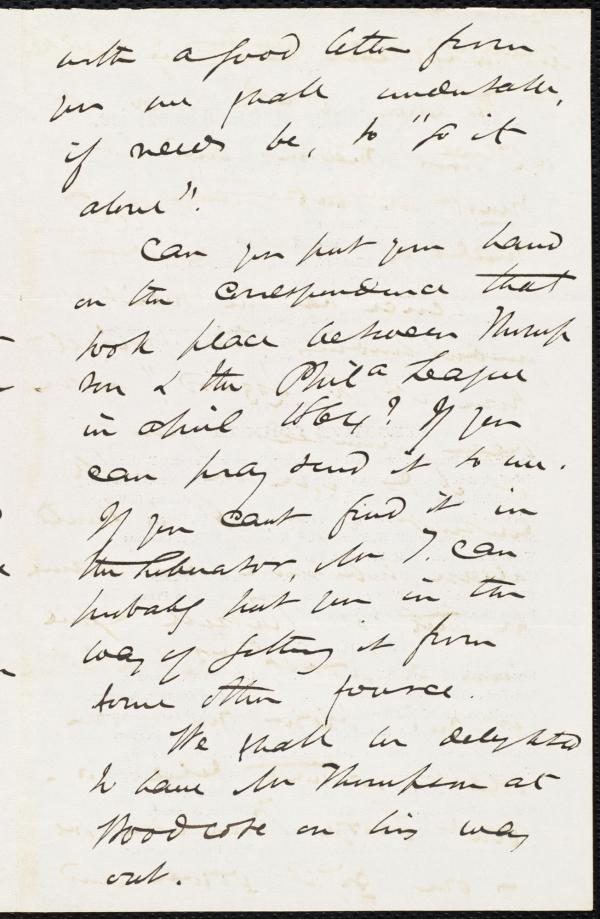 with a good letter from
you we shall undertake,
if needs be, to "go it
alone".
Can you put your hand
on the correspondence that
took place between Thomp
son & the Phila League
in April 1864? If you
can pray send it to me.
If you cant find it in
the Liberator, Mr T. can
probably put you in the
way of getting it from
some other source.
We shall be delighted
to have Mr Thompson at
Woodcote on his way
out.